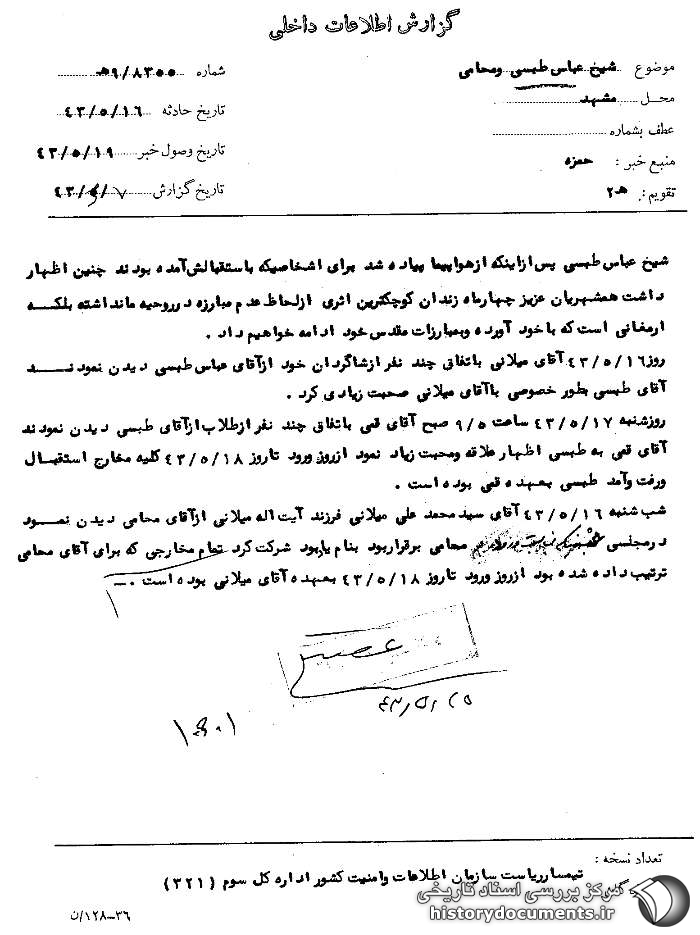 گزارش اطلاعات داخلی
موضوع شیخ عباس طبسی ومحامی
شماره ۹/۸۳۵۵هـ
محل مشهد
تاریخ حادثه ۴۳/۵/۱۶
عطف بشماره
تاریخ وصول خبر ۴۳/۵/۱۹
منبع خبر : حمزه
تاریخ گزارش ۴۳/
تقویم : هـ۲
شیخ عباس طبسی پس ازاینکه ازهواپیما پیاده شد برای اشخاصیکه باستقبالش آمده بودند چنین اظهار
داشت همشهریان عزیز چهارماه زندان کوچکترین اثری ازلحاظ عدم مبارزه درروحیه مانداشته بلکه
ارمغانی است که با خود آورده وبمبارزات مقدس خود ادامه خواهیم داد .
روز ۴۳/۵/۱۶ آقای میلانی باتفاق چند نفر ازشاگردان خود ازآقای عباس طبسی دیدن نمودند
آقای طبسی بطور خصوصی باآقای میلانی صحبت زیادی کرد .
روزشنبه ۴۳/۵/۱۷ ساعت ۹/۵ صبح آقای قمی باتفاق چند نفر ازطلاب ازآقای طبسی دیدن نمودند
آقای قمی به طبسی اظهار علاقه ومحبت زیاد نمود ازروز ورود تاروز ۴۳/۵/۱۸ کلیه مخارج استقبال
ورفت وآمد طبسی بعهده قمی بوده است .
شب شنبه ۴۳/۵/۱۶ آقای سیدمحمد علی میلانی فرزند آیت اله میلانی ازآقای محامی دیدن نمود
درمجلسی محامی برقراربود بنام یابود شرکت کرد تمام مخارجی که برای آقای محامی
ترتیب داده شده بود ازروز ورود تاروز ۴۳/۵/۱۸ بعهده آقای میلانی بوده است .
۴۳/۵/۲۵
تعداد نسخه :
تیمسار ریاست سازمان اطلاعات وامنیت کشور اداره کل سوم (۳۲۱)
۳۶-۱۲۸/ن
مرکز بررسی اسناد تاریخی
historydocuments.ir